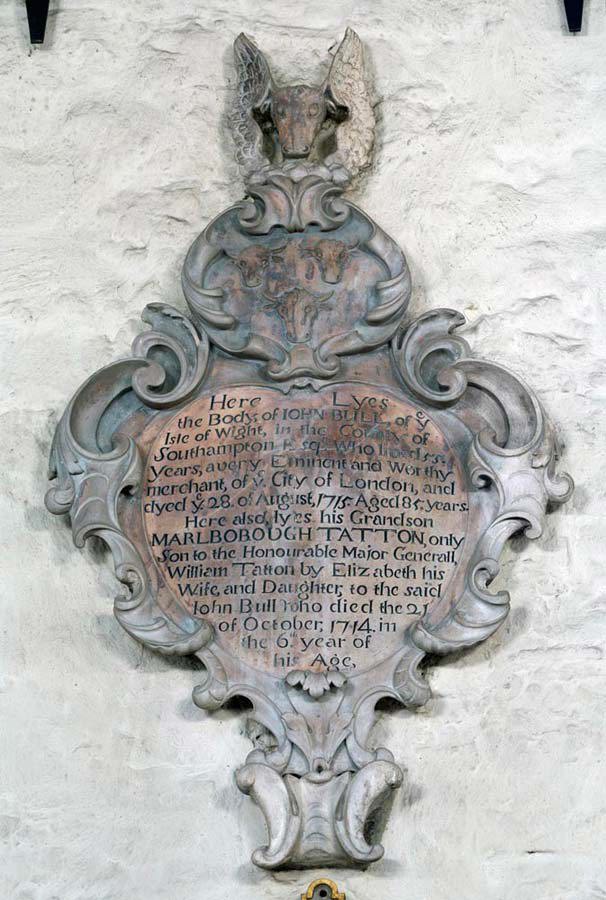 Here Lyes yᵉ
the Body, of IOHN BULL, of yᵉ
Isle of Wight, in the County of
Southampton Esqʳ. Who lived 55
Years, a very Eminent and Worthy
merchant, of yᵉ City of London, and
dyed yᵉ 28. of August, 1715. Aged 85. years.
Here also, lyes his Grandson
MARLBOROUGH TATTON, only
Son to the Honourable Major Generall,
William Tatton by Elizabeth his
Wife, and Daughter, to the said
John Bull who died the 21
of October, 1714. in
the 6.ᵗʰ year of
his Age,